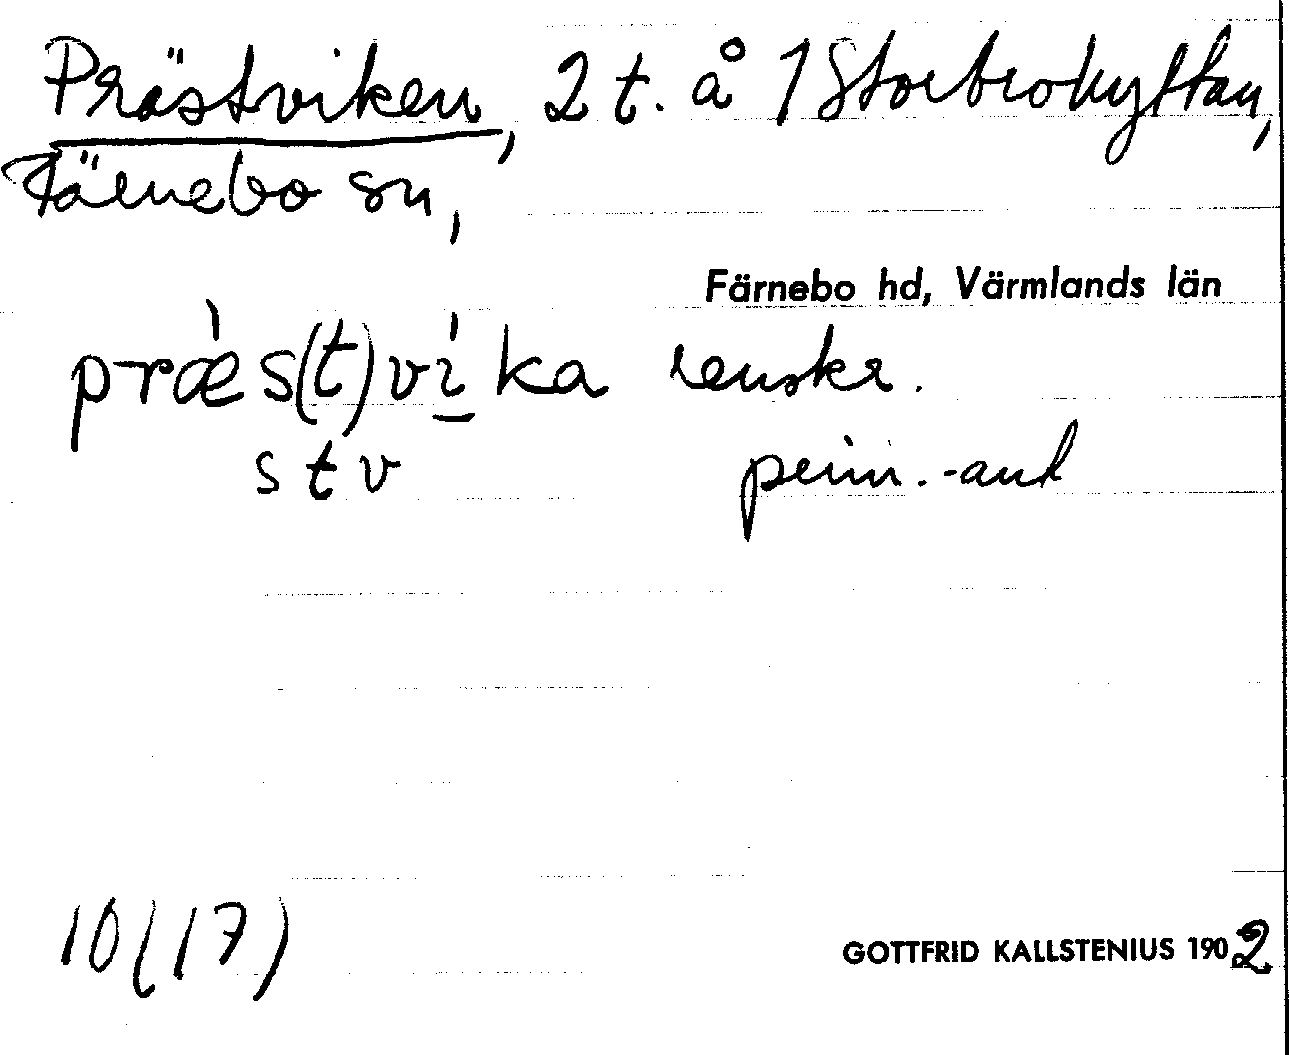 Prästviken, 2 t. å 1 Storbrohyttan,
Färnebo sn,
Färnebo hd, Värmlands län
prǽs(t)víka renskr.
s t v prim.-ant
10(17)
GOTTFRID KALLSTENIUS 1902